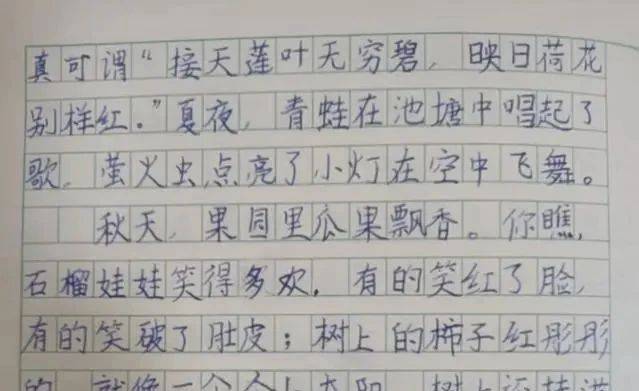 真可谓“接天莲叶无穷碧，映日荷花
别样红.”夏夜，青蛙在池塘中唱起了
歌，萤火虫点亮了小灯在空中飞舞。
秋天，果园里瓜果飘香。你瞧，
石榴娃娃笑得多欢，有的笑红了脸，
有的笑破了肚皮；树上的柿子红彤彤
的，就像一个个小太阳